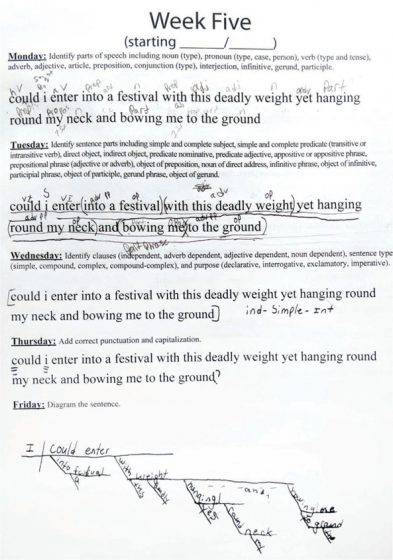 Week Five
(starting ______/______)
Monday: Identify parts of speech including noun (type), pronoun (type, case, person), verb (type and tense),
adverb, adjective, article, preposition, conjunction (type), interjection, infinitive, gerund, participle.
hv n V prep n prep adj n adv Part
could i enter into a festival with this deadly weight yet hanging
round my neck and bowing me to the ground
Tuesday: Identify sentence parts including simple and complete subject, simple and complete predicate (transitive or
intransitive verb), direct object, indirect object, predicate nominative, predicate adjective, appositive or appositive phrase,
prepositional phrase (adjective or adverb), object of preposition, noun of direct address, infinitive phrase, object of infinitive,
participial phrase, object of participle, gerund phrase, object of gerund.
S VI adv PP op adv op
could i enter (into a festival) (with this deadly weight) yet hanging
adv PP op adv PP op
(round my neck) and (bowing me) (to the ground)
Part Phrase
Wednesday: Identify clauses (independent, adverb dependent, adjective dependent, noun dependent), sentence type
(simple, compound, complex, compound-complex), and purpose (declarative, interrogative, exclamatory, imperative).
[could i enter into a festival with this deadly weight yet hanging round
my neck and bowing me to the ground] ind- Simple- Int
Thursday: Add correct punctuation and capitalization.
could i enter into a festival with this deadly weight yet hanging round
my neck and bowing me to the ground?
Friday: Diagram the sentence.
I Could enter
into festival a
with weight this deadly
hanging yet
and
round neck my
bowing me
to ground the